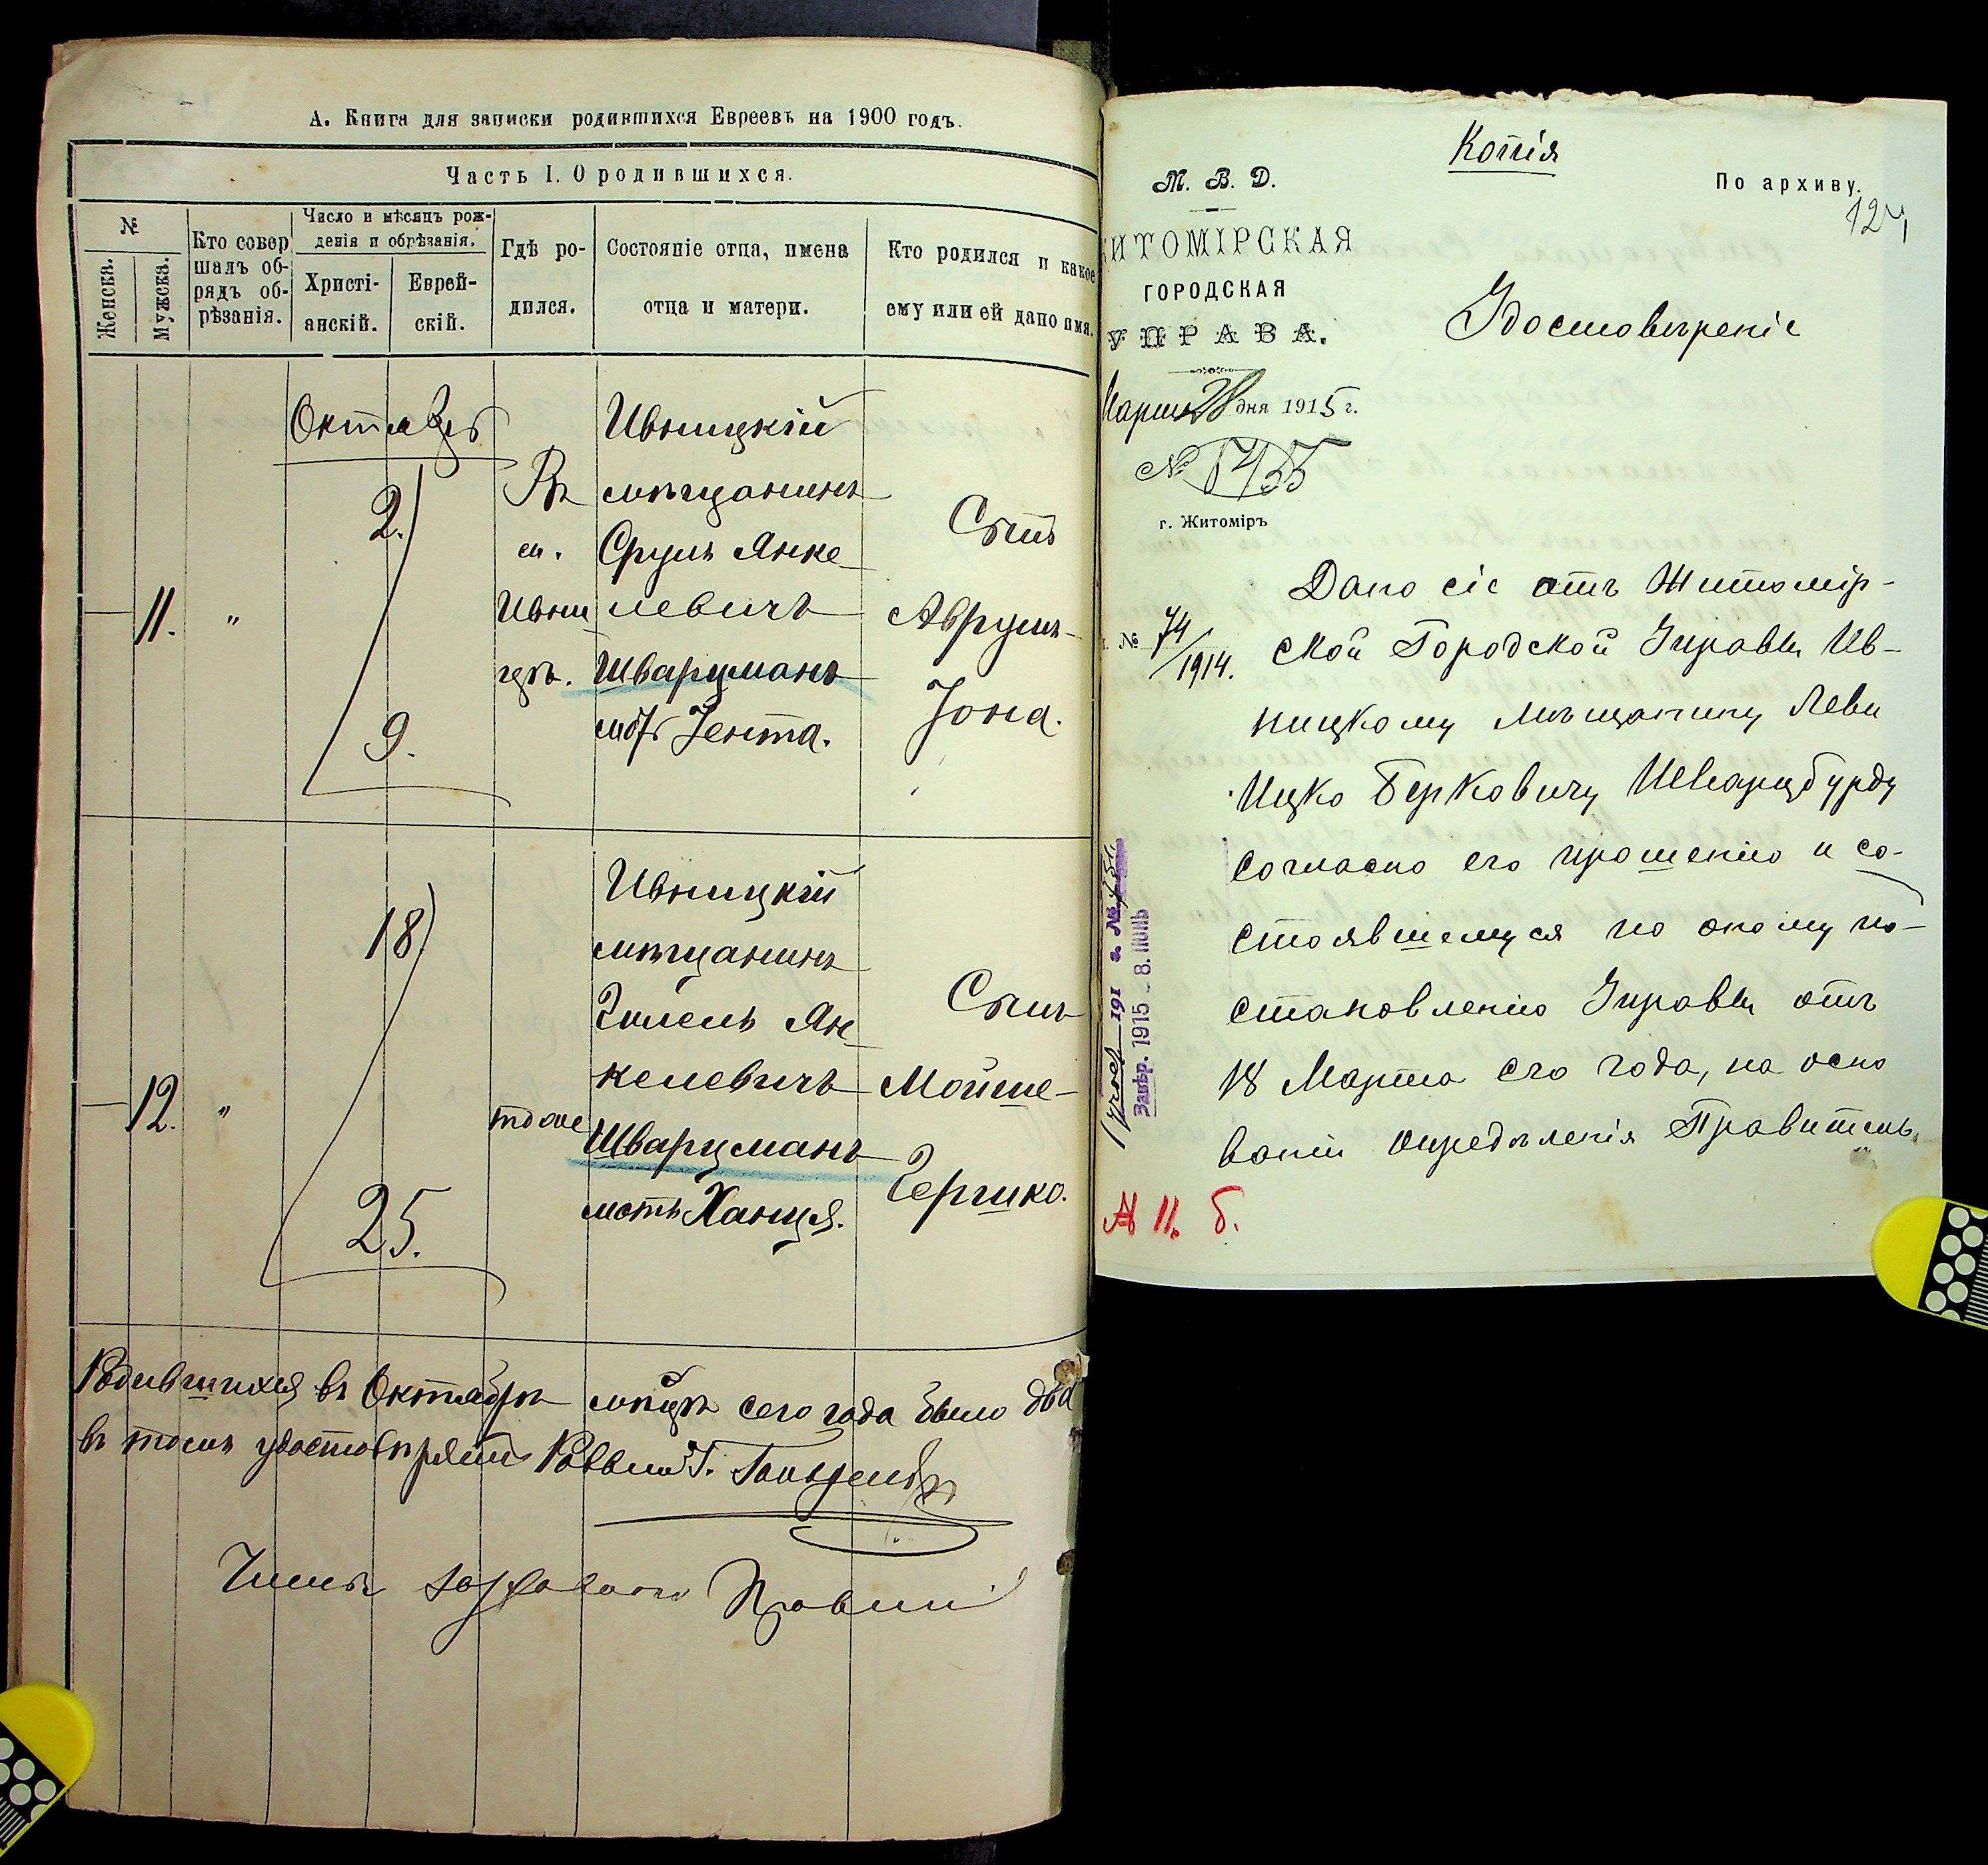 А. Книга для записки родившихся Евреевъ на 1900 годъ.
Часть I. О родившихся.
№
Женска.
Мужска.
Кто совер
шалъ об-
рядъ об-
рѣзанія.
Число и мѣсяцъ рож-
денія и обрѣзанія.
Христі-
анскій.
Еврей-
скій.
Гдѣ ро-
дился.
Состояніе отца, имена
отца и матери.
Кто родился и какое
ему или ей дано имя.
Октябрь
11.
"
2.
9.
Въ
м.
Ивни
цѣ.
Ивницкій
мѣщанинъ
Сруль Янке
левичъ
Шварцманъ
Іента.
Сынъ
Аврумъ-
Іона.
12.
"
18
25.
тоже
Ивницкій
мѣщанинъ
Ян
келевичъ
Шварцманъ
мать Ханця.
Сынъ
Мойше-
Гершко.
Родившихся въ Октябрѣ мѣсцѣ сего года было два
въ томъ удостовѣряю Раввинъ
Члены Правленія
Копія
М. В. Д.
По архиву.
124
ИТОМІРСКАЯ
ГОРОДСКАЯ
УПРАВА.
Удостовѣреніе
Марта 28 дня 1915 г.
№ 5455
г. Житоміръ
№ 74/1914.
Дано сіе отъ Житомір-
ской Городской Управы Ив-
ницкому Мѣщанину Леви
Ицко Берковичу Шварцбурду
согласно его прошенію и со-
стоявшемуся по оному по-
становленію Управы отъ
18 Марта сего года, на осно
ваніи опредѣленія Правитель
191 г. №
1915 - 8. ІЮНЬ
А 11. б.